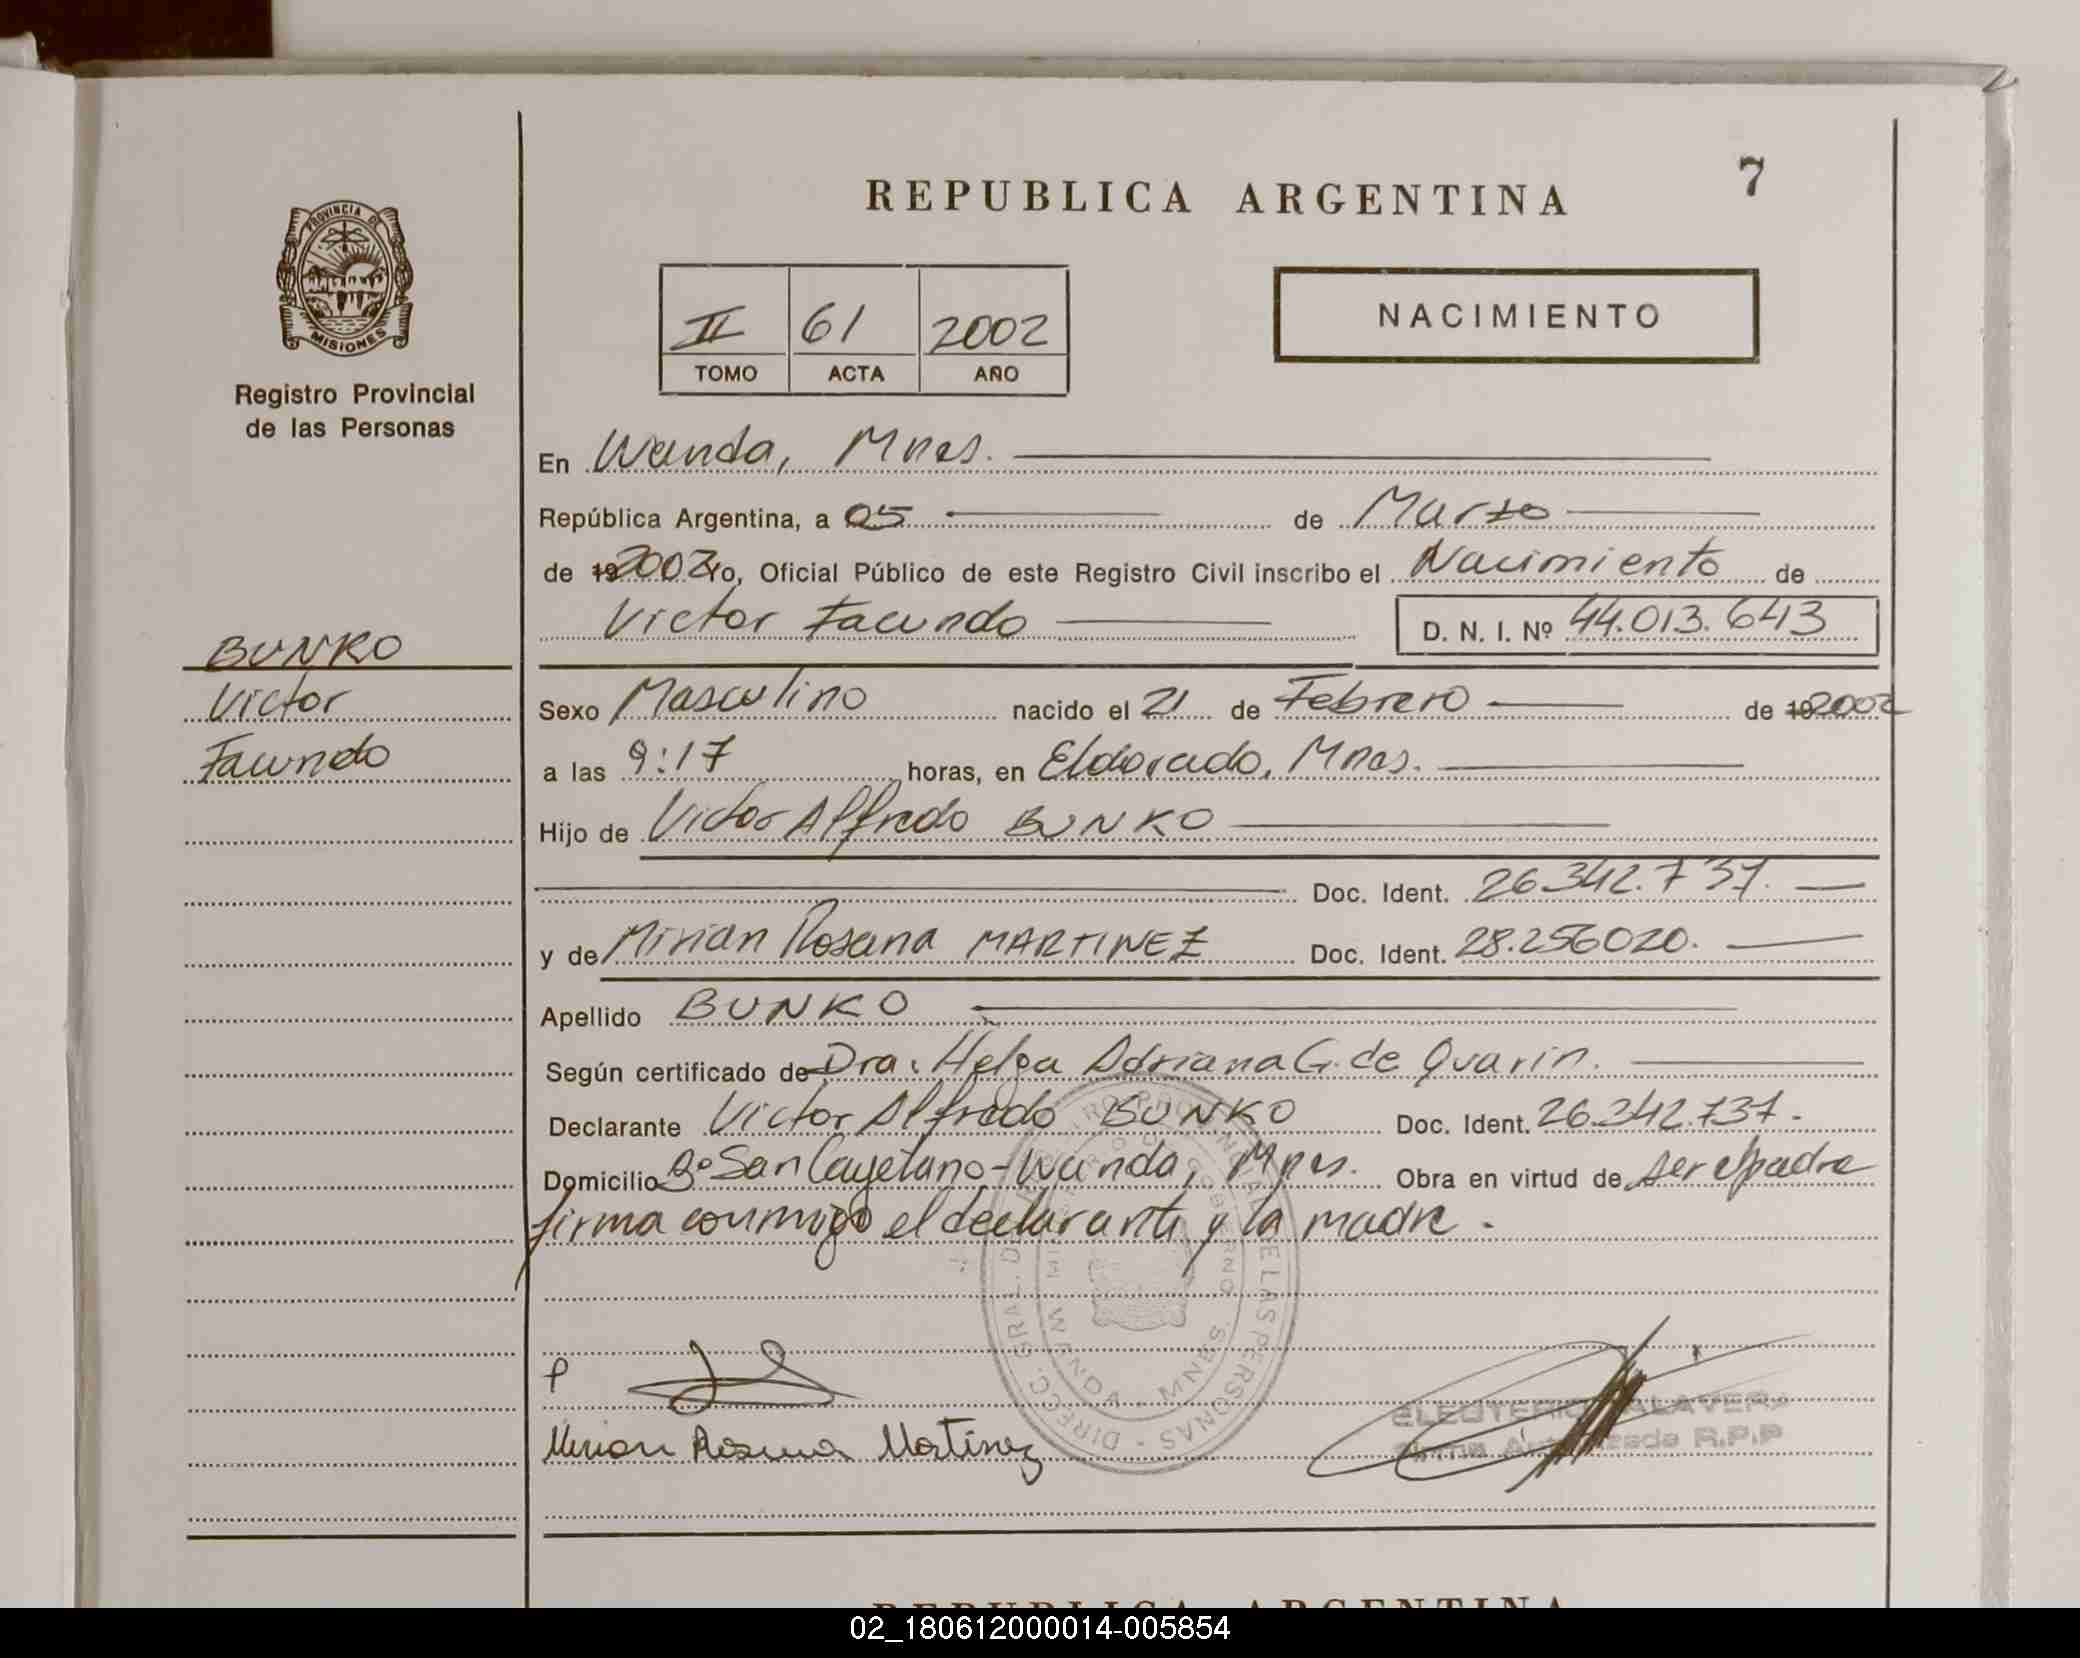 7
REPUBLICA ARGENTINA
PROVINCIA DE
MISIONES
Registro Provincial
de las Personas
II 61 2002
TOMO ACTA AÑO
NACIMIENTO
En Wanda, Mnes.
República Argentina, a 05 de Marzo
de 19 2002 Yo, Oficial Público de este Registro Civil inscribo el Nacimiento de
Victor Facundo D. N. I. Nº 44.013.643
BUNKO
Victor
Facundo
Sexo Masculino nacido el 21 de Febrero de 19 2002
a las 9:17 horas, en Eldorado, Mnes.
Hijo de Victor Alfredo BUNKO
Doc. Ident. 26.342.737.
y de Mirian Rosana MARTINEZ Doc. Ident. 28.256020.
Apellido BUNKO
Según certificado de Dra. Helga Adriana G. de Quarin.
Declarante Victor Alfredo BUNKO Doc. Ident. 26.342.737.
Domicilio Bº San Cayetano - Wanda, Mnes. Obra en virtud de ser el padre
firma conmigo el declarante y la madre.
DIRECC. GRAL. DE REGISTRO PROVINCIAL DE LAS PERSONAS
WANDA - MNES.
P
Mirian Rosana Martinez
ELEUTERIO TALAVERA
Firma Autorizada R.P.P
REPUBLICA ARGENTINA
02_180612000014-005854